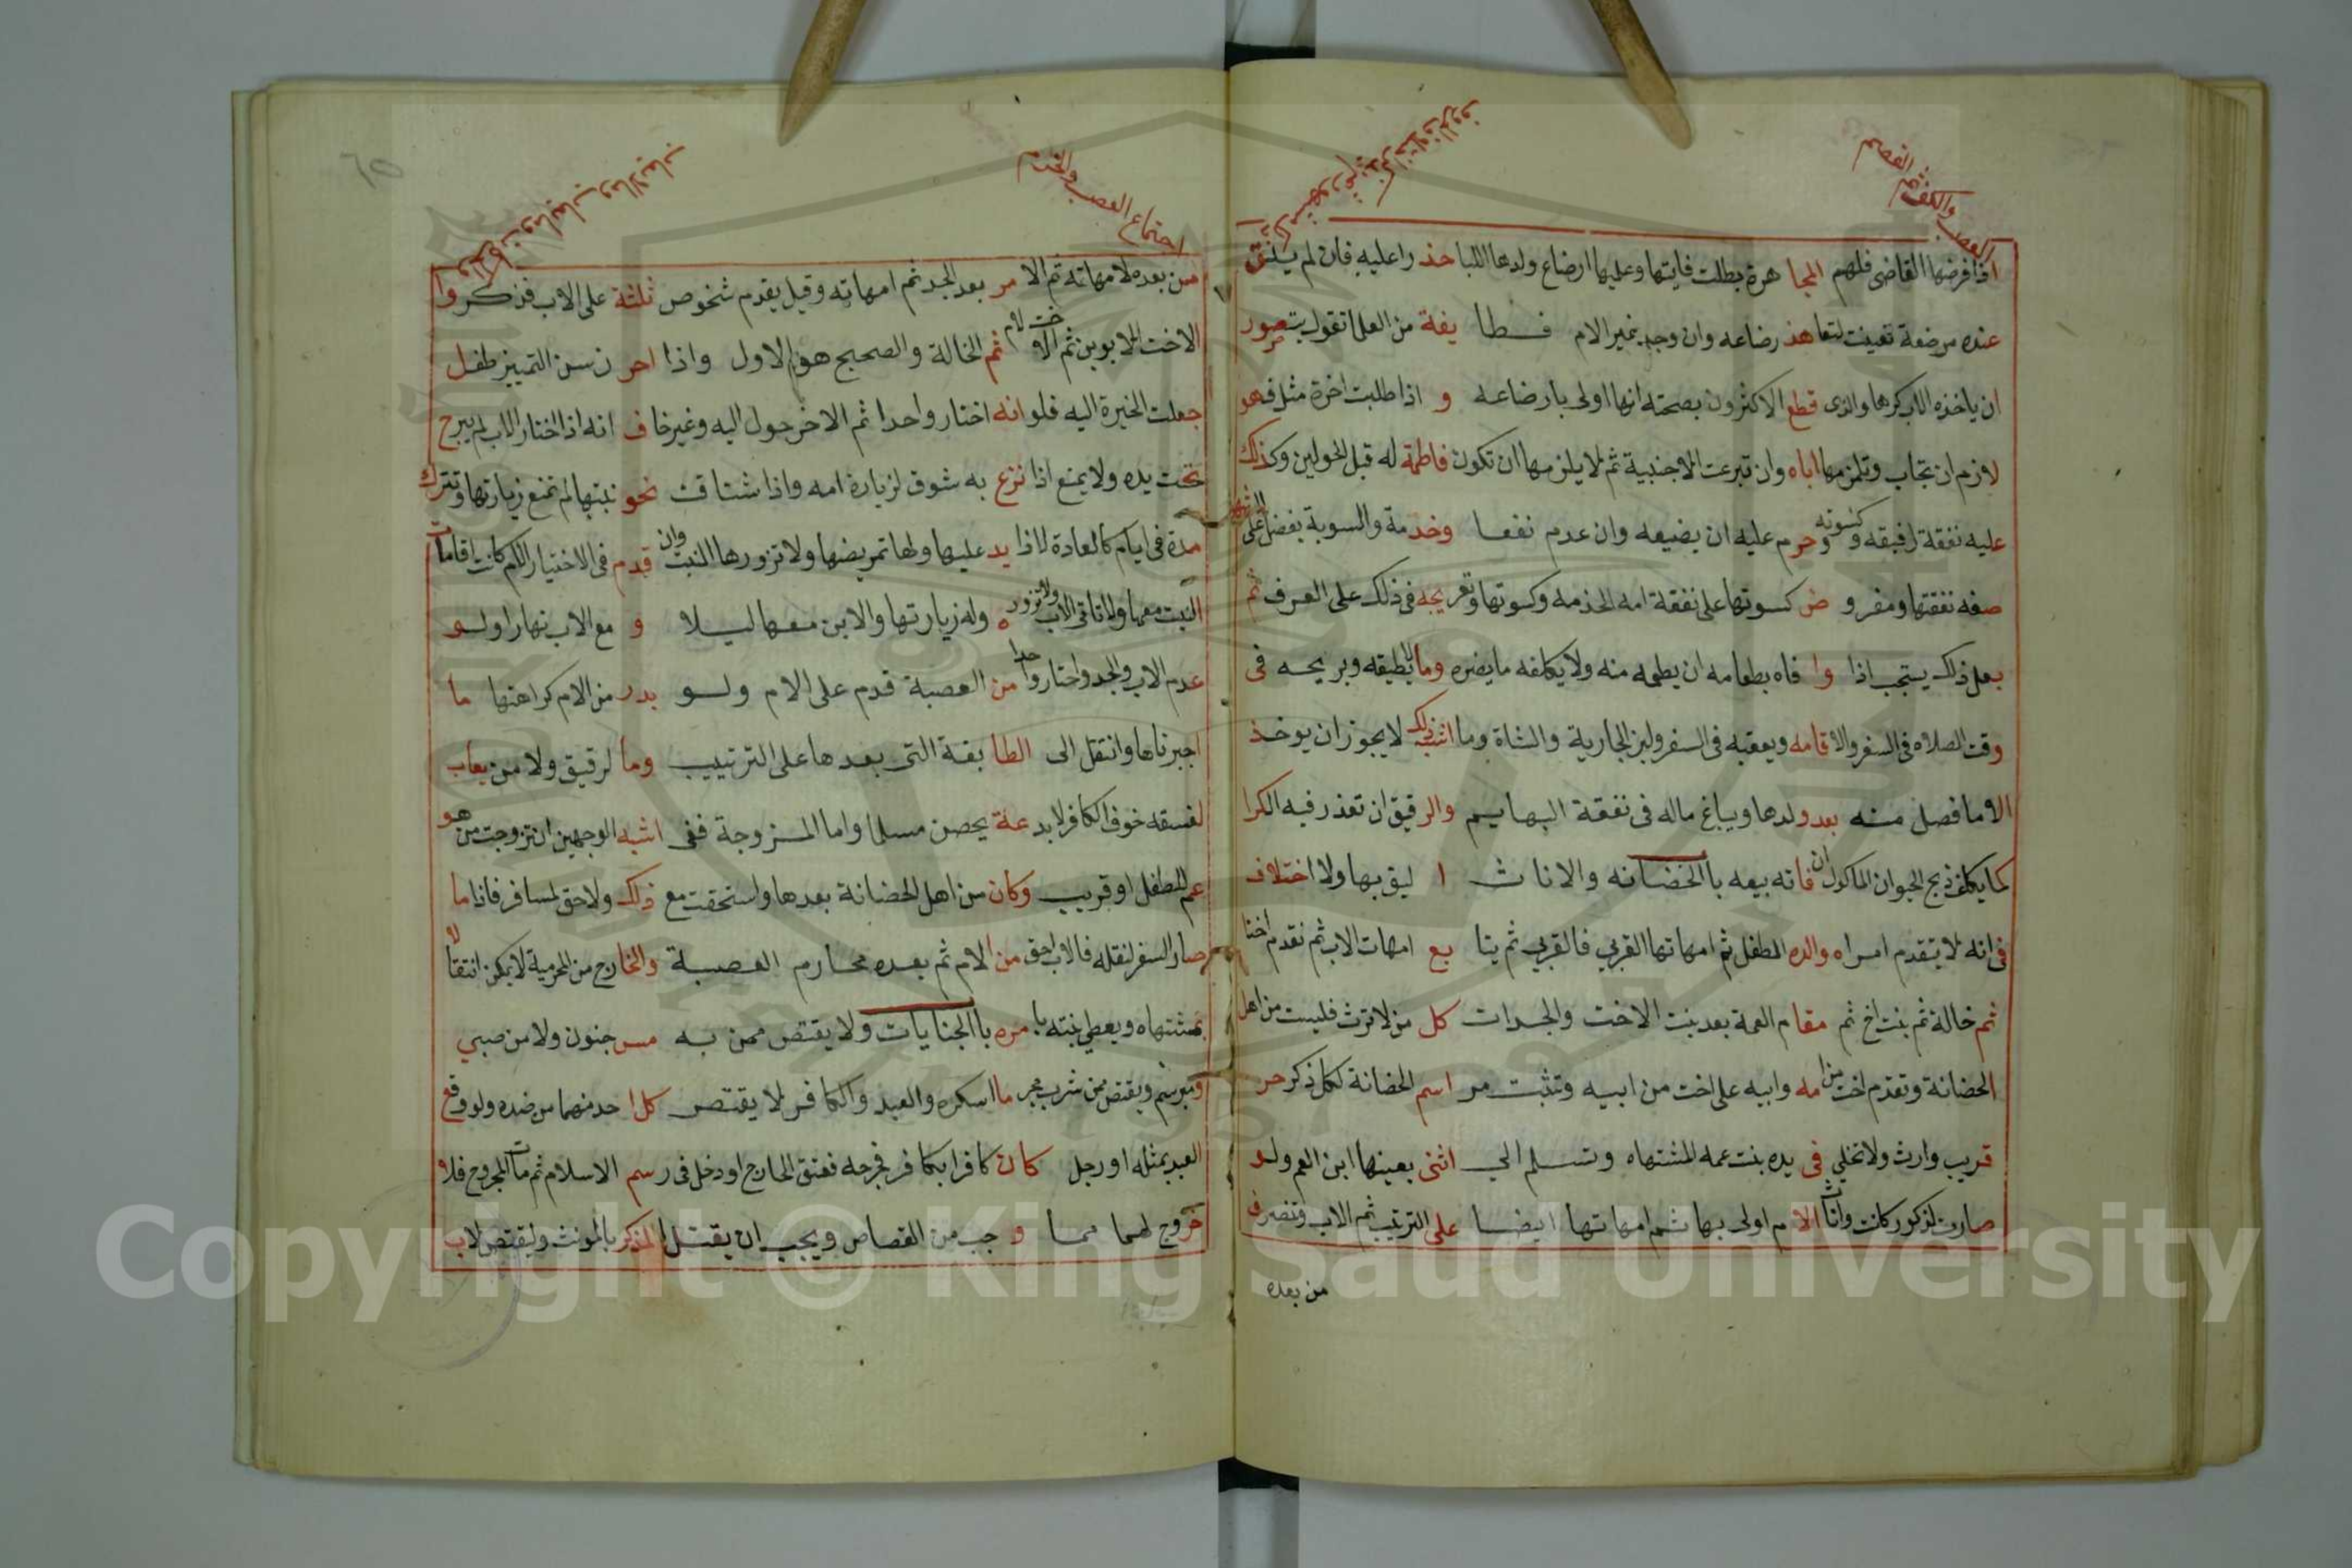 العصب والكف
القصم
اذا فرضها القاضي فلهم المجا هرة بطلت فايتها وعليها ارضاع ولدها اللبا حذ را عليه فان لم يلتق
عنده مرضعة تعينت لتعا هذ رضاعه وان وجد غير الام فطا يفة من العلما تقول يتصور
ان ياخذه الاب كرها والذي قطع الاكثرون بصحته انها اولى بارضاعه و اذا طلبت اخرة مثل فهو
لازم ان تجاب وتلزمها اباه وان تبرعت الاجنبية ثم لا يلزمها ان تكون فاطمة له قبل الحولين وكذلك
عليه نفقة رقيقه وكسوته وحرم عليه ان يضيعه وان عدم نفعا وخد مة والسوية بفضل على
صفه نفقتها ومفرو ض كسوتها على نفقة امه الخدمه وكسوتها وتعريجه في ذلك على العرف ثم
بعل ذلك يستجب اذا وا فاه بطعامه ان يطعمه منه ولا يكلفه ما يضره وما لا يطيقه ويريحه في
وقت الصلاه في السفر والاقامه ويعقبه في السفر ولبن الجارية والشاة وما اشبه ذلك لا يجوز ان يوخذ
الا ما فصل منه بعد ولدها ويباع ماله في نفقة البهايم والرقيق ان تعذر فيه الكرا
كما يكلف ذبح الحيوان الماكول فان فاته بيعه باالحضانه والاناث ا ليق بها ولا اختلاف
في انه لا يتقدم امراه والده الطفل ثم امهاتها القربي فالقربي ثم يتا بع امهات الاب ثم نقدم اختا
ثم خالة ثم بنت اخ ثم مقام العمة بعد بنت الاخت والجدات كل من لا ترث فليست من اهل
الحضانة وتقدم اخت من امه وابيه على اخت من ابيه وتثبت مر اسم الحضانة لكل ذكر حر
قريب وارث ولا تخلي في يده بنت عمه المشتهاه وتسلم الي اثنى بعينها ابن العم ولد
صارت لذكور كانت واناث الا م اولى بها ثم امهاتها ايضا على الترتيب ثم الاب وتضرف
من بعده
اجتماع العصب والخرم
من بعده لامهاته ثم الا مر بعد الجد ثم امهاته وقيل يقدم شخوص ثلثة على الاب فذكروا
الاخت للابوين ثم الاخت لام ثم الخالة والصحيح هو الاول واذا احر ز سن التمييز طفل
جعلت الخيرة اليه فلو انه اختار واحدا ثم الاخر حول اليه وغير خاف انه اذا اختار الاب لم يبرح
تحت يده ولا يمنع اذا نزع به شوق لزيارة امه واذا شتاقت نحو بنتها لم تمنع زيارتها وتترك
مدة في ايام كالعادة لاذا يد عليها ولها تمريضها ولا تزورها البنت وان قدم في الاختيار الام كانت اقامات
البنت معها ولا تاتي الاب ولا تزوره وله زيارتها والابن معها ليلا و مع الاب نهارا ولو
عدم الاب والجد واختار واحدا من العصبة قدم على الام ولو بدر من الام كراهتها ما
اجبرناها وانتقل الى الطا يفة التي بعدها على الترتيب وما لرقيق ولا من يعاب
لفسقه خوف الكافر لا يد عة يحصن مسلما واما المزوجة ففي اشبه الوجهين ان تزوجت من هو
عم للطفل او قريب وكان من اهل الحضانة بعدها واستحقت مع ذلك ولا حق لمسافر فاذا ما
صار السفر لنقله فالاب احق من الام ثم بعده محارم العصبة والخارج من المحرمية لا يمكن انتقا لا
بمشتهاه ويعطي بنته با مره باالجنايات ولا يقتص ممن به مس جنون ولا من صبي
ومبرسم ويقتص ممن شرب مجر ما اسكره والعبد والكافر لا يقتص كل ا حد منهما من ضده ولو وقع
العبد بمثله او رجل كان كافرا بكافر فجرحه فعتق الجارح او دخل في رسم الاسلام ثم مات المجروح فلا
خروج لهما مما و جب من القصاص ويجب ان يقتل المذكر بالمونث وليقتص لاب